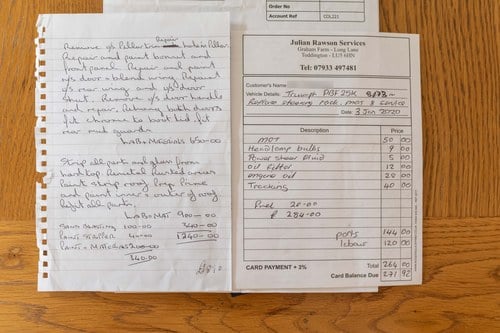 Order No
Account Ref COL221
Repair
and paint bonnet and
front panel. Repair and paint
o/s door + blend wing. Repaint
o/s rear wing and
Remove o/s door handles
fit chrome to boot lid fit
rear mud guards
LAB + MATERIALS 650-00
Strip all parts and glass from
hard top
paint strip roof
and paint inner + outer of roof
refit all parts.
LAB + MAT 900-00
SAND BLASTING 100-00 340-00
PAINT STRIPPER 40-00 1240-00
PAINT + MATERIALS 200-00
340.00
Julian Rawson Services
Graham Farm - Long Lane
Toddington - LU5 6HN
Tel: 07933 497481
Customer's Name
Vehicle Details: Triumph
Replace steering rack, MOT & Service
Date: 3 Jan 2020
Description
MOT 50 00
Headlamp bulbs 9 00
Power steer fluid 5 00
oil filter 12 00
engine oil 28 00
Tracking 40 00
Fuel 20-00
£ 284-00
parts 144 00
labour 120 00
Total 264 00
CARD PAYMENT + 3% Card Balance Due 271 92